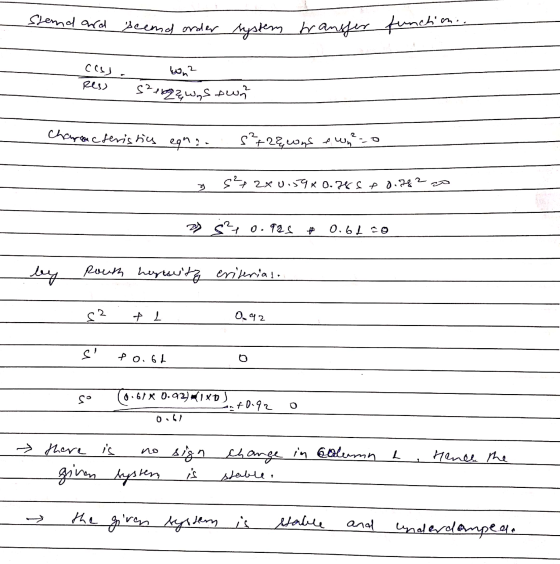 Standard second order system transfer function..
C(s) / R(s) = ωn² / S²+2ξωnS+ωn²
Characteristics eqn:- S²+2ξωnS+ωn²=0
⇒ S²+2×0.59×0.78S+0.78²=0
⇒ S²+0.92S+0.61=0
by Routh hurwitz criterias.
S² +1 0.92
S¹ +0.61 0
S⁰ (0.61×0.92)-(1×0) / 0.61 = +0.92 0
→ there is no sign change in column 1. Hence the
given system is stable.
→ the given system is stable and underdamped.